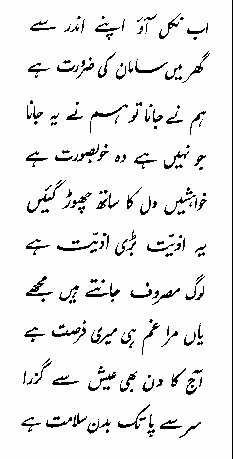 اب نکل آؤ اپنے اندر سے
گھر میں سامان کی ضرورت ہے
ہم نے جانا تو ہم نے یہ جانا
جو نہیں ہے وہ خوبصورت ہے
خواہشیں دل کا ساتھ چھوڑ گئیں
یہ اذیّت بڑی اذیّت ہے
لوگ مصروف جانتے ہیں مجھے
یاں مرا غم ہی میری فرصت ہے
آج کا دن بھی عیش سے گزرا
سر سے پا تک بدن سلامت ہے